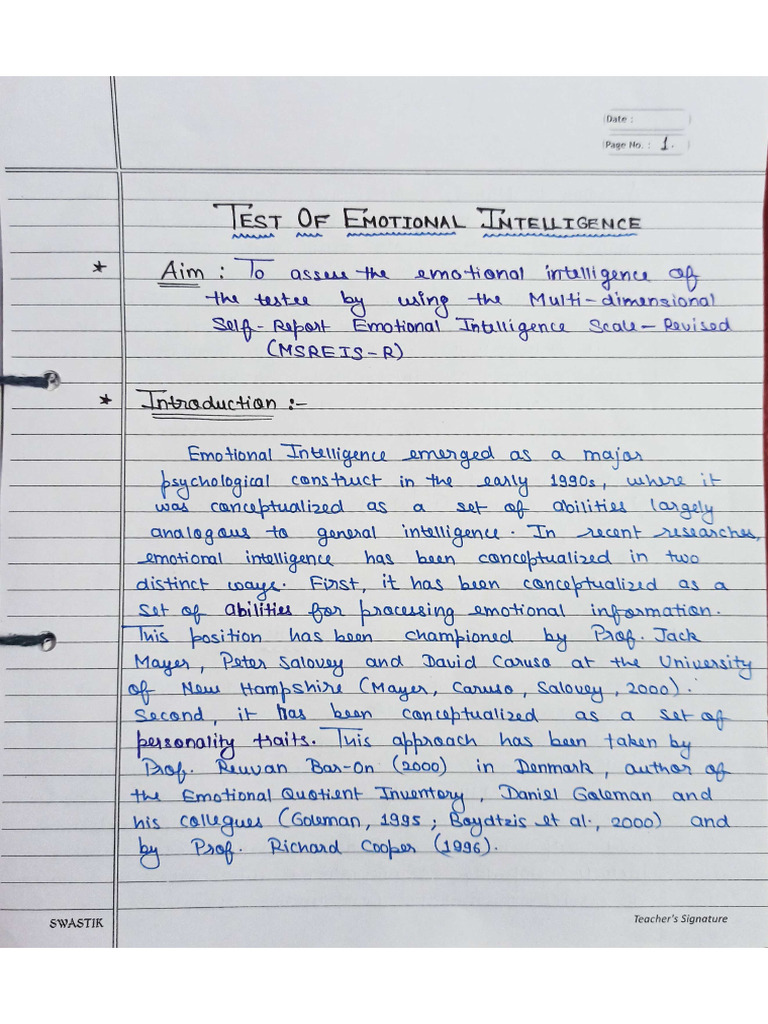 Date :
Page No. : 1.
TEST OF EMOTIONAL INTELLIGENCE
* Aim : To assess the emotional intelligence of
the testee by using the Multi-dimensional
Self-Report Emotional Intelligence Scale-Revised
(MSREIS-R)
* Introduction :-
Emotional Intelligence emerged as a major
psychological construct in the early 1990s, where it
was conceptualized as a set of abilities largely
analogous to general intelligence. In recent researches,
emotional intelligence has been conceptualized in two
distinct ways. First, it has been conceptualized as a
set of abilities for processing emotional information.
This position has been championed by Prof. Jack
Mayer, Peter Salovey and David Caruso at the University
of New Hampshire (Mayer, Caruso, Salovey, 2000).
Second, it has been conceptualized as a set of
personality traits. This approach has been taken by
Prof. Reuvan Bar-On (2000) in Denmark, author of
the Emotional Quotient Inventory, Daniel Goleman and
his collegues (Goleman, 1995 ; Boydtzis et al., 2000) and
by Prof. Richard Cooper (1996).
SWASTIK
Teacher's Signature